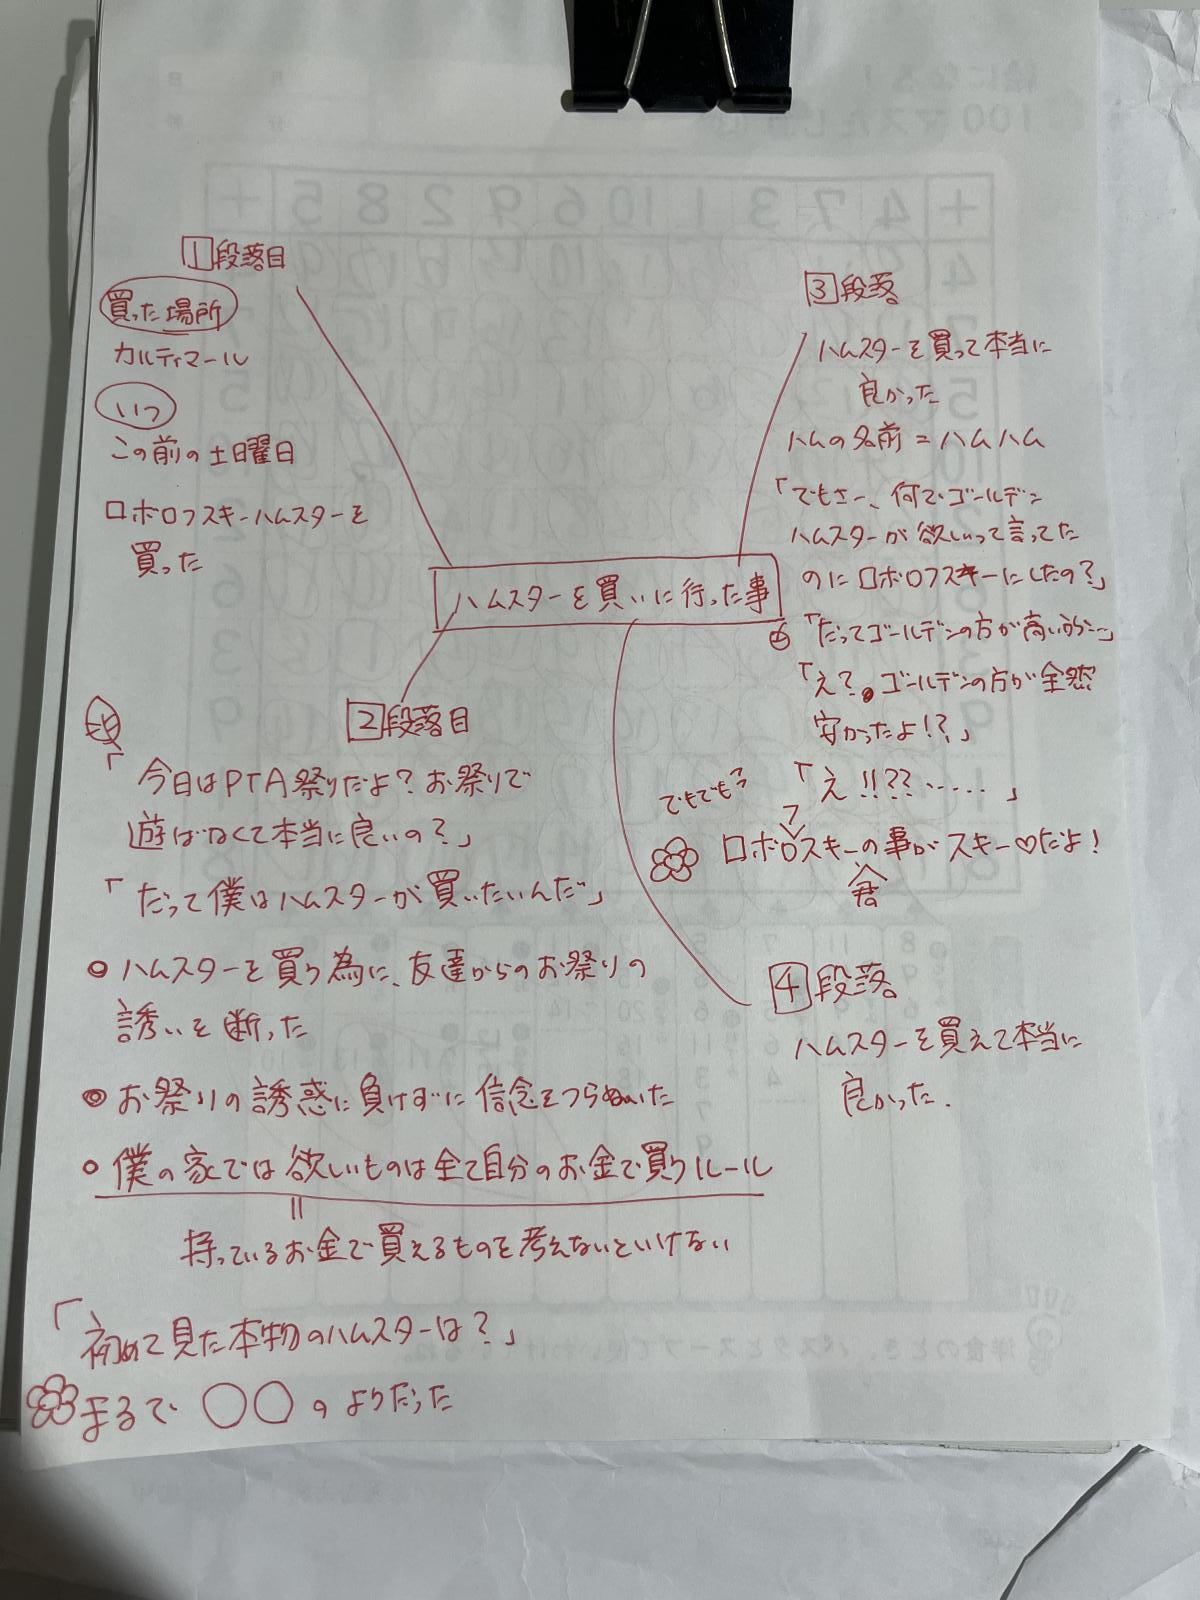 1 段落目
買った場所
カルディマール
いつ
この前の土曜日
ロボロフスキーハムスターを
買った
ハムスターを買いに行った事
2 段落目
「今日はPTA祭りだよ？お祭りで
遊ばなくて本当に良いの？」
「だって僕はハムスターが買いたいんだ」
ハムスターを買う為に、友達からのお祭りの
誘いを断った
お祭りの誘惑に負けずに信念をつらぬいた
僕の家では欲しいものは全て自分のお金で買うルール
=
持っているお金で買えるものを考えないといけない
「初めて見た本物のハムスターは？」
まるで○○のようだった
3 段落
ハムスターを買って本当に
良かった
ハムの名前＝ハムハム
「でもさー、何でゴールデン
ハムスターが欲しいって言ってた
のにロボロフスキーにしたの？」
「だってゴールデンの方が高いから…」
「え？。ゴールデンの方が全然
安かったよ！？」
「え！！？？……」
でもでも？
ロボロフスキーの君事がスキー♡だよ！
4 段落
ハムスターを買えて本当に
良かった．